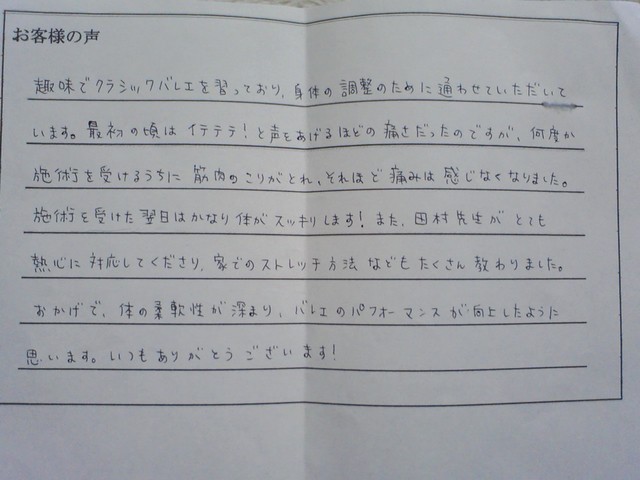 お客様の声
趣味でクラシックバレエを習っており、身体の調整のために通わせていただいて
います。最初の頃はイテテテ!と声をあげるほどの痛さだったのですが、何度か
施術を受けるうちに筋肉のこりがとれ、それほど痛みは感じなくなりました。
施術を受けた翌日はかなり体がスッキリします!また、田村先生がとても
熱心に対応してくださり、家でのストレッチ方法などもたくさん教わりました。
おかげで、体の柔軟性が深まり、バレエのパフォーマンスが向上したように
思います。いつもありがとうございます!